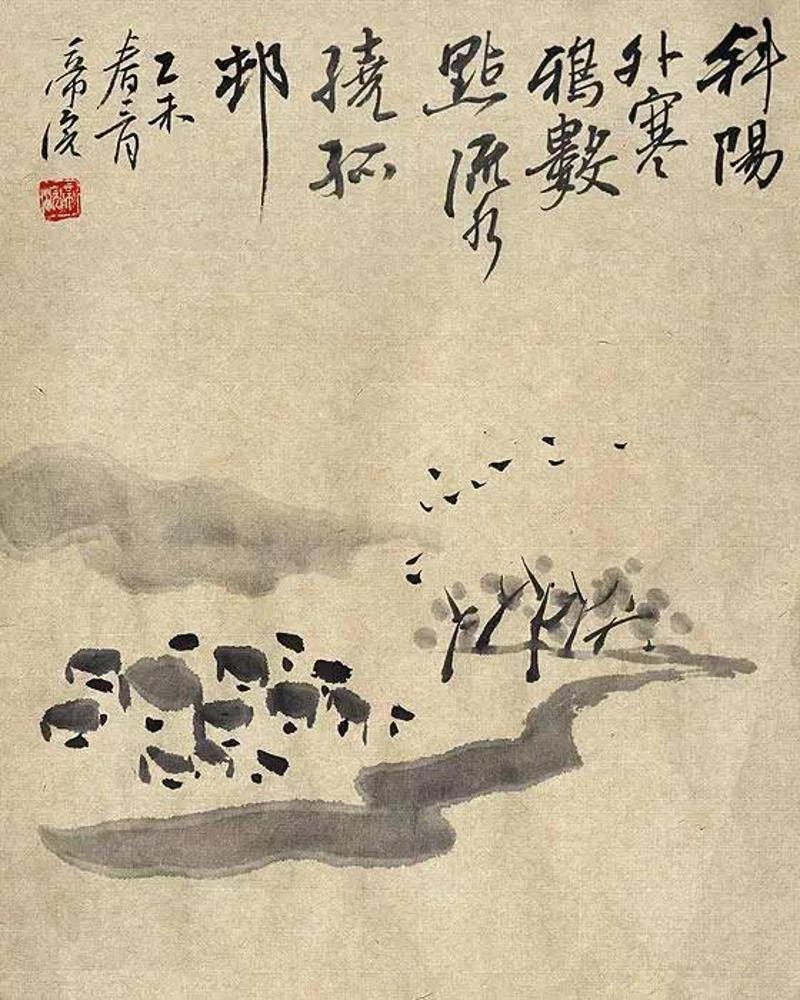 斜陽
外寒
鴉數
點流水
繞孤
邨
乙未
春二月
帝浣